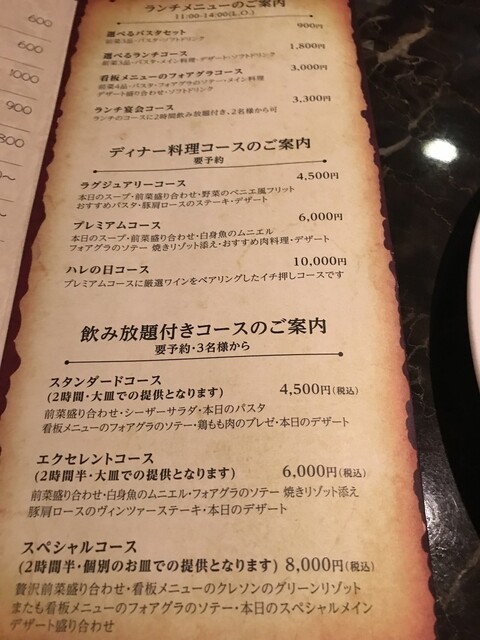 600
600
1000
900
ランチメニューのご案内
11:00-14:00(L.O.)
選べるパスタセット 900円
前菜3品・パスタ・ソフトドリンク
選べるランチコース 1,800円
前菜3品・パスタ・メイン料理・デザート・ソフトドリンク
看板メニューのフォアグラコース 3,000円
前菜4品・パスタ・フォアグラのソテー・メイン料理
デザート盛り合わせ・ソフトドリンク
ランチ宴会コース 3,300円
ランチのコースに2時間飲み放題付き。2名様から可
ディナー料理コースのご案内
要予約
ラグジュアリーコース 4,500円
本日のスープ・前菜盛り合わせ・野菜のベニエ風フリット
おすすめパスタ・豚肩ロースのステーキ・デザート
プレミアムコース 6,000円
本日のスープ・前菜盛り合わせ・白身魚のムニエル
フォアグラのソテー 焼きリゾット添え・おすすめ肉料理・デザート
ハレの日コース 10,000円
プレミアムコースに厳選ワインをペアリングしたイチ押しコースです
飲み放題付きコースのご案内
要予約・3名様から
スタンダードコース
(2時間・大皿での提供となります) 4,500円(税込)
前菜盛り合わせ・シーザーサラダ・本日のパスタ
看板メニューのフォアグラのソテー・鶏もも肉のブレゼ・本日のデザート
エクセレントコース
(2時間半・大皿での提供となります) 6,000円(税込)
前菜盛り合わせ・白身魚のムニエル・フォアグラのソテー 焼きリゾット添え
豚肩ロースのヴィンツァーステーキ・本日のデザート
スペシャルコース
(2時間半・個別のお皿での提供となります) 8,000円(税込)
贅沢前菜盛り合わせ・看板メニューのクレソンのグリーンリゾット
またも看板メニューのフォアグラのソテー・本日のスペシャルメイン
デザート盛り合わせ